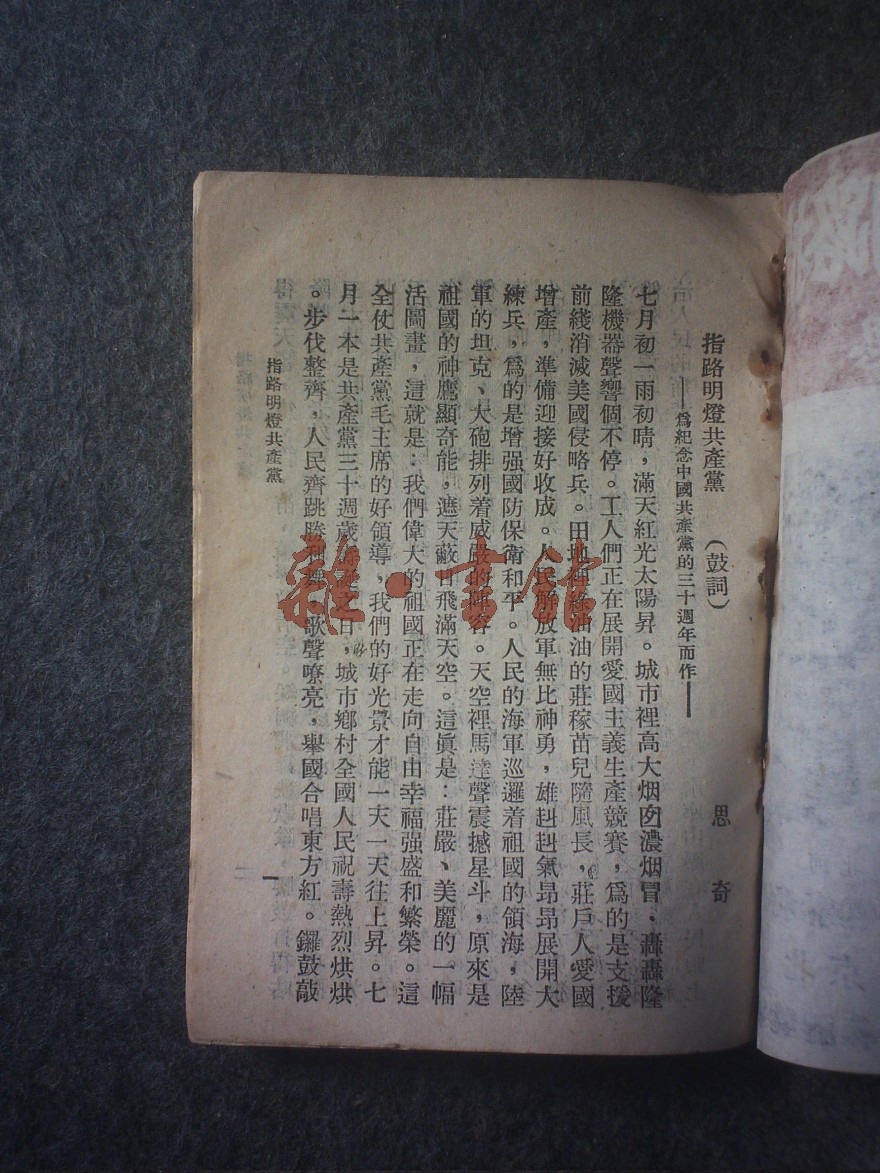 指路明燈共產黨 （鼓詞） 思奇
——爲紀念中國共產黨的三十週年而作——
七月初一雨初晴，滿天紅光太陽昇。城市裡高大烟囱濃烟冒，轟轟隆
隆機器聲響個不停。工人們正在展開愛國主義生產競賽，爲的是支援
前綫消滅美國侵略兵。田地裡綠油油的莊稼苗兒隨風長，莊戶人愛國
增產，準備迎接好收成。人民解放軍無比神勇，雄赳赳氣昂昂展開大
練兵，爲的是增强國防保衛和平。人民的海軍巡邏着祖國的領海，陸
軍的坦克、大砲排列着威嚴的陣容。天空裡馬達聲震撼星斗，原來是
祖國的神鷹顯奇能，遮天蔽日飛滿天空。這眞是：莊嚴、美麗的一幅
活圖畫，這就是：我們偉大的祖國正在走向自由幸福强盛和繁榮。這
全仗共產黨毛主席的好領導，我們的好光景才能一天一天往上昇。七
月一本是共產黨三十週歲誕之日，城市鄉村全國人民祝壽熱烈烘烘
。步伐整齊，人民齊跳勝利舞，歌聲嘹亮，舉國合唱東方紅。鑼鼓敲
指路明燈共產黨
一
雜·書館